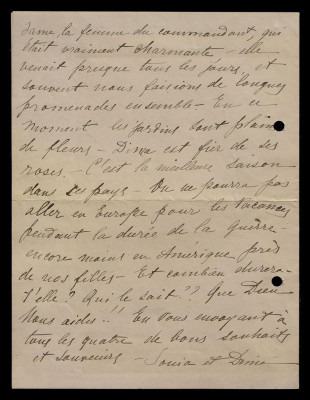 dame, la femme du commandant, qui
était vraiment charmante - elle
venait presque tous les jours, et
souvent nous faisions de longues
promenades ensemble - En ce
moment les jardins sont pleins
de fleurs - Dima est fier de ses
roses. - C'est la meilleure saison
dans ce pays - On ne pourra pas
aller en Europe pour les vacances
pendant la durée de la guerre -
encore moins en Amérique près
de nos filles - Et combien durera-
t'elle? Qui le sait?? Que Dieu
Nous aides!! En vous envoyant à
tous les quatre de bons souhaits
et souvenirs - Sonia et Dima